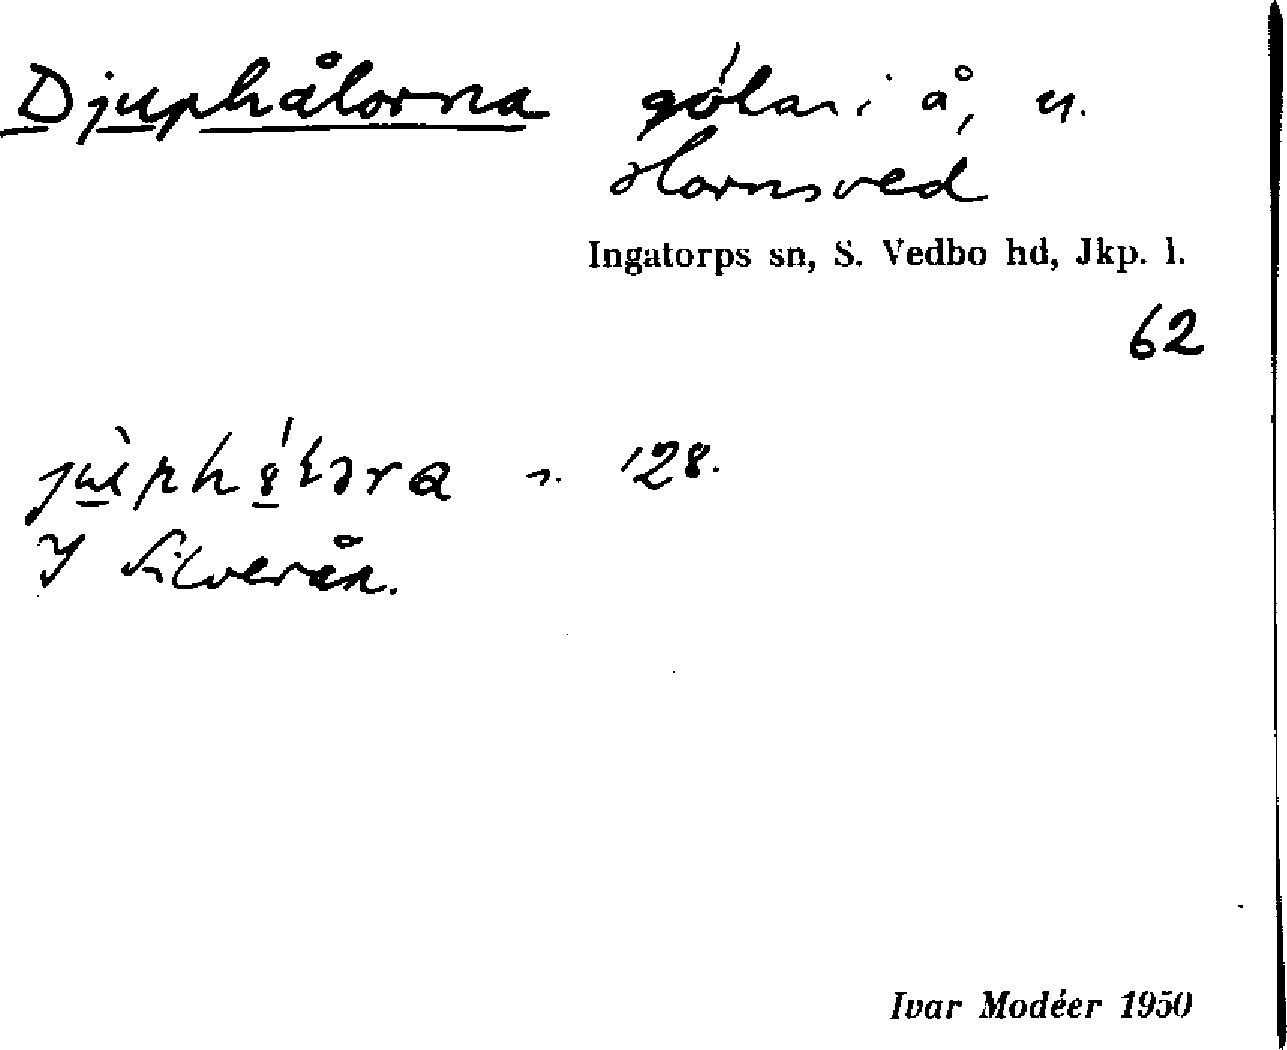 Djuphålorna gölar i å, u.
Hornsved
Ingatorps sn, S. Vedbo hd, Jkp. l.
62
128.
I Silverån.
Ivar Modéer 1950